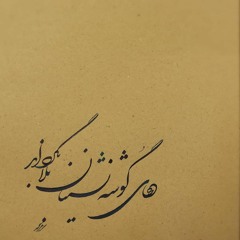 دعای گوشه نشینان بلا بگرداند